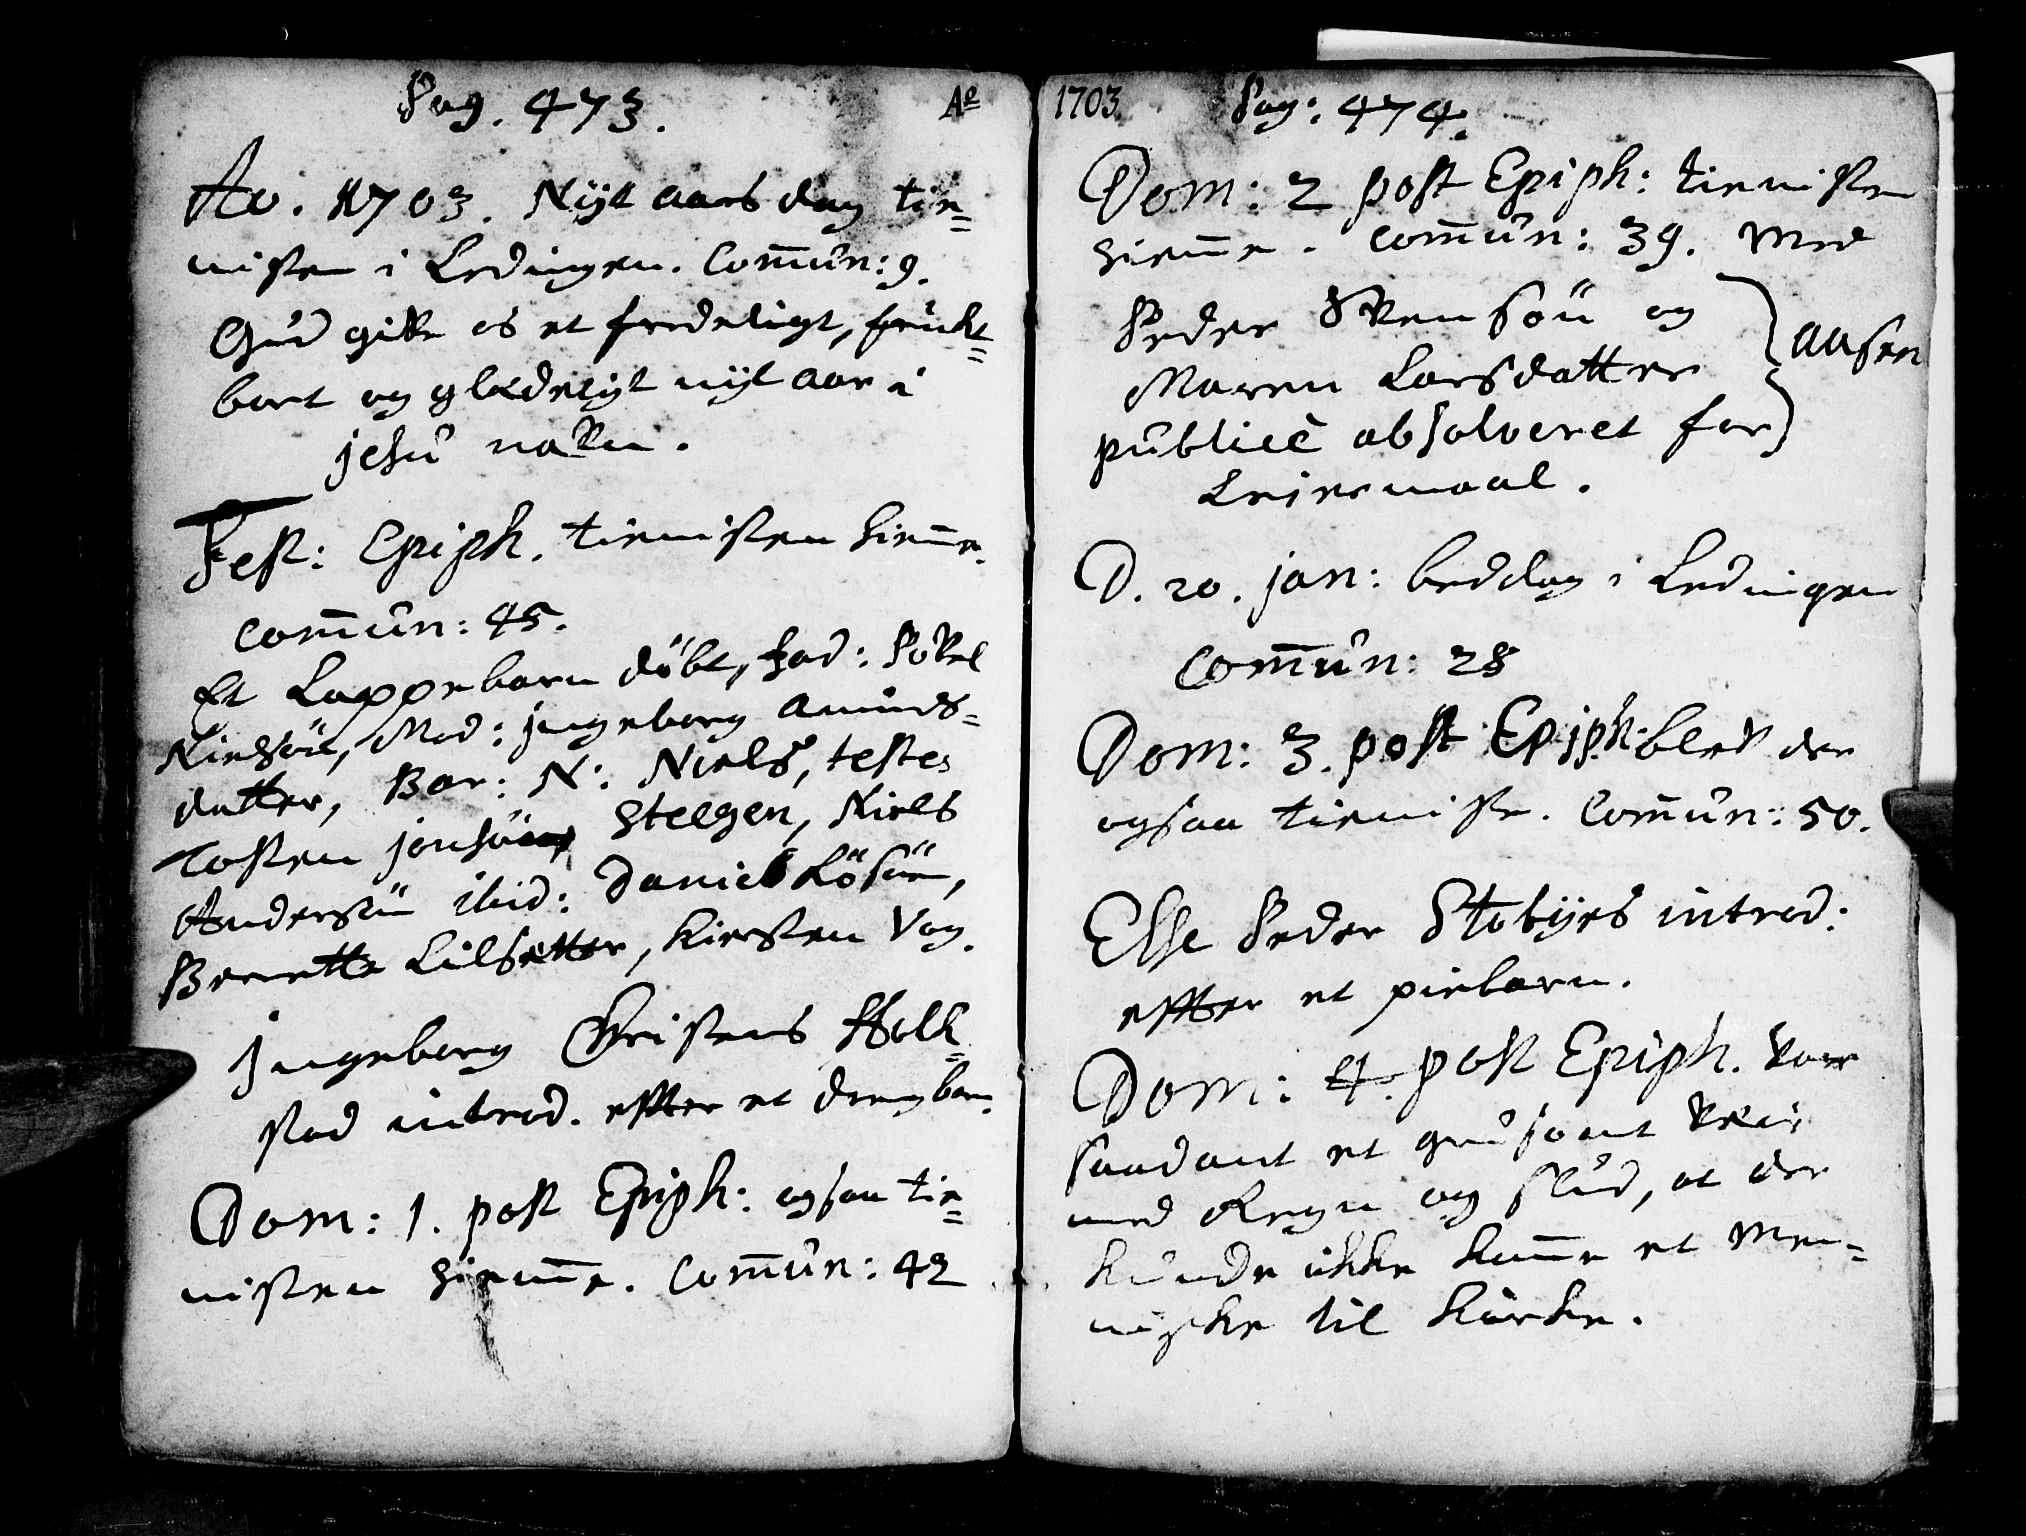 Pag. 473.
Aº
Ao. 1703. Nÿt aars dag tie=
nisten i Ledingen. Com̄un: 9.
Gud gifve os et fredeligt, frucht=
bart og glædeligt nÿt aar i
jesu nafn.
Fest: Epiph. tienisten hiem̄e.
Com̄un: 45.
Et Lappebarn döbt, Fad: Povel
Nielsön, Mod: jngeborg Amunds=
datter, Bar: N: Niels, testes
Tosten jonsön, Steegen, Niels
Andersön ibid: Daniel
Berrette Lilsetter, Kirsten Vog.
Jngeborg Christens Holk=
stad introd. effter et drengbarn.
Dom: 1. post Epiph: ogsaa tie=
nisten hiem̄e. Com̄un: 42
1703.
Pag: 474.
Dom: 2 post Epiph: tienisten
hiem̄e. Com̄un: 39. Med
Peder Svensön og
Maren Larsdatter
Aasen
publicè absolveret for
Leiermaal.
D. 20. jan: beddag i Ledingen
Com̄un: 28
Dom: 3. post Epiph: blef der
ogsaa tieniste. Com̄un: 50.
Else Peder Stobÿes introd:
effter et piebarn.
Dom: 4. post Epiph. var
saadant et grusomt veir
med Regn og slud, at der
kunde ikke kom̄e et men=
niske til kirke.